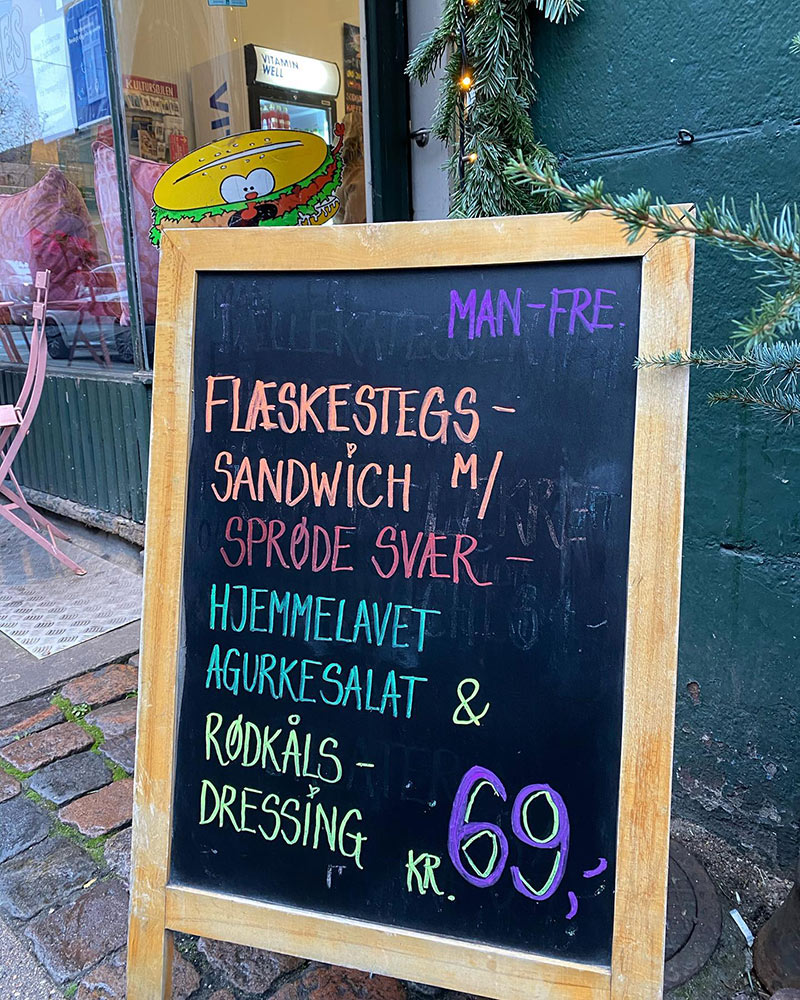 VITAMIN
WELL
KULTURSØJLEN
MAN-FRE.
FLÆSKESTEGS-
SANDWICH M/
SPRØDE SVÆR -
HJEMMELAVET
AGURKESALAT &
RØDKÅLS-
DRESSING
KR. 69,-